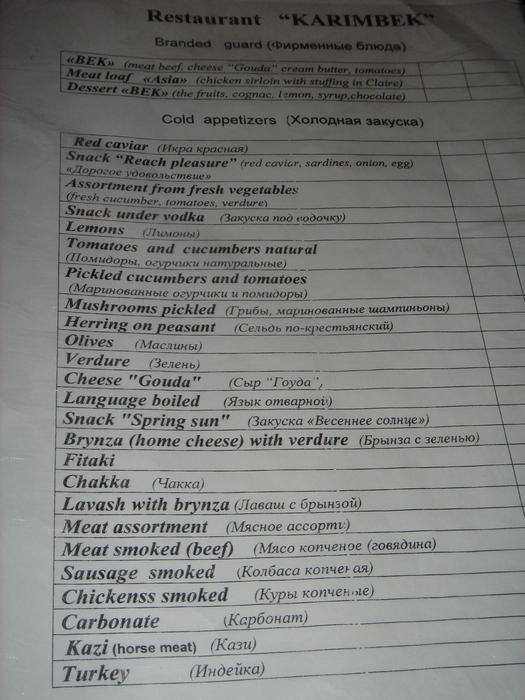 Restaurant "KARIMBEK"
Branded guard (Фирменные блюда)
«BEK» (meat beef, cheese "Gouda" cream butter, tomatoes)
Meat loaf «Asia» (chicken sirloin with stuffing in Claire)
Dessert «BEK» (the fruits, cognac, lemon, syrup,chocolate)
Cold appetizers (Холодная закуска)
Red caviar (Икра красная)
Snack "Reach pleasure" (red caviar, sardines, onion, egg)
«Дорогое удовольствие»
Assortment from fresh vegetables
(fresh cucumber, tomatoes, verdure)
Snack under vodka (Закуска под водочку)
Lemons (Лимоны)
Tomatoes and cucumbers natural
(Помидоры, огурчики натуральные)
Pickled cucumbers and tomatoes
(Маринованные огурчики и помидоры)
Mushrooms pickled (Грибы, маринованные шампиньоны)
Herring on peasant (Сельдь по-крестьянский)
Olives (Маслины)
Verdure (Зелень)
Cheese "Gouda" (Сыр "Гоуда")
Language boiled (Язык отварной)
Snack "Spring sun" (Закуска «Весеннее солнце»)
Brynza (home cheese) with verdure (Брынза с зеленью)
Fitaki
Chakka (Чакка)
Lavash with brynza (Лаваш с брынзой)
Meat assortment (Мясное ассорти)
Meat smoked (beef) (Мясо копченое (говядина)
Sausage smoked (Колбаса копченая)
Chickenss smoked (Куры копченые)
Carbonate (Карбонат)
Kazi (horse meat) (Кази)
Turkey (Индейка)